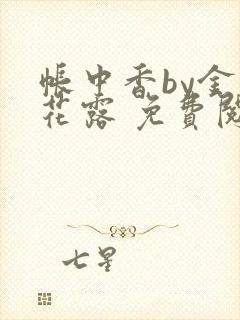 帳中香by金
花露 免費閱
七星